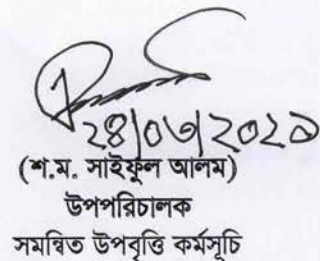 ২৪/০৩/২০২১
(শ.ম. সাইফুল আলম)
উপপরিচালক
সমন্বিত উপবৃত্তি কর্মসূচি